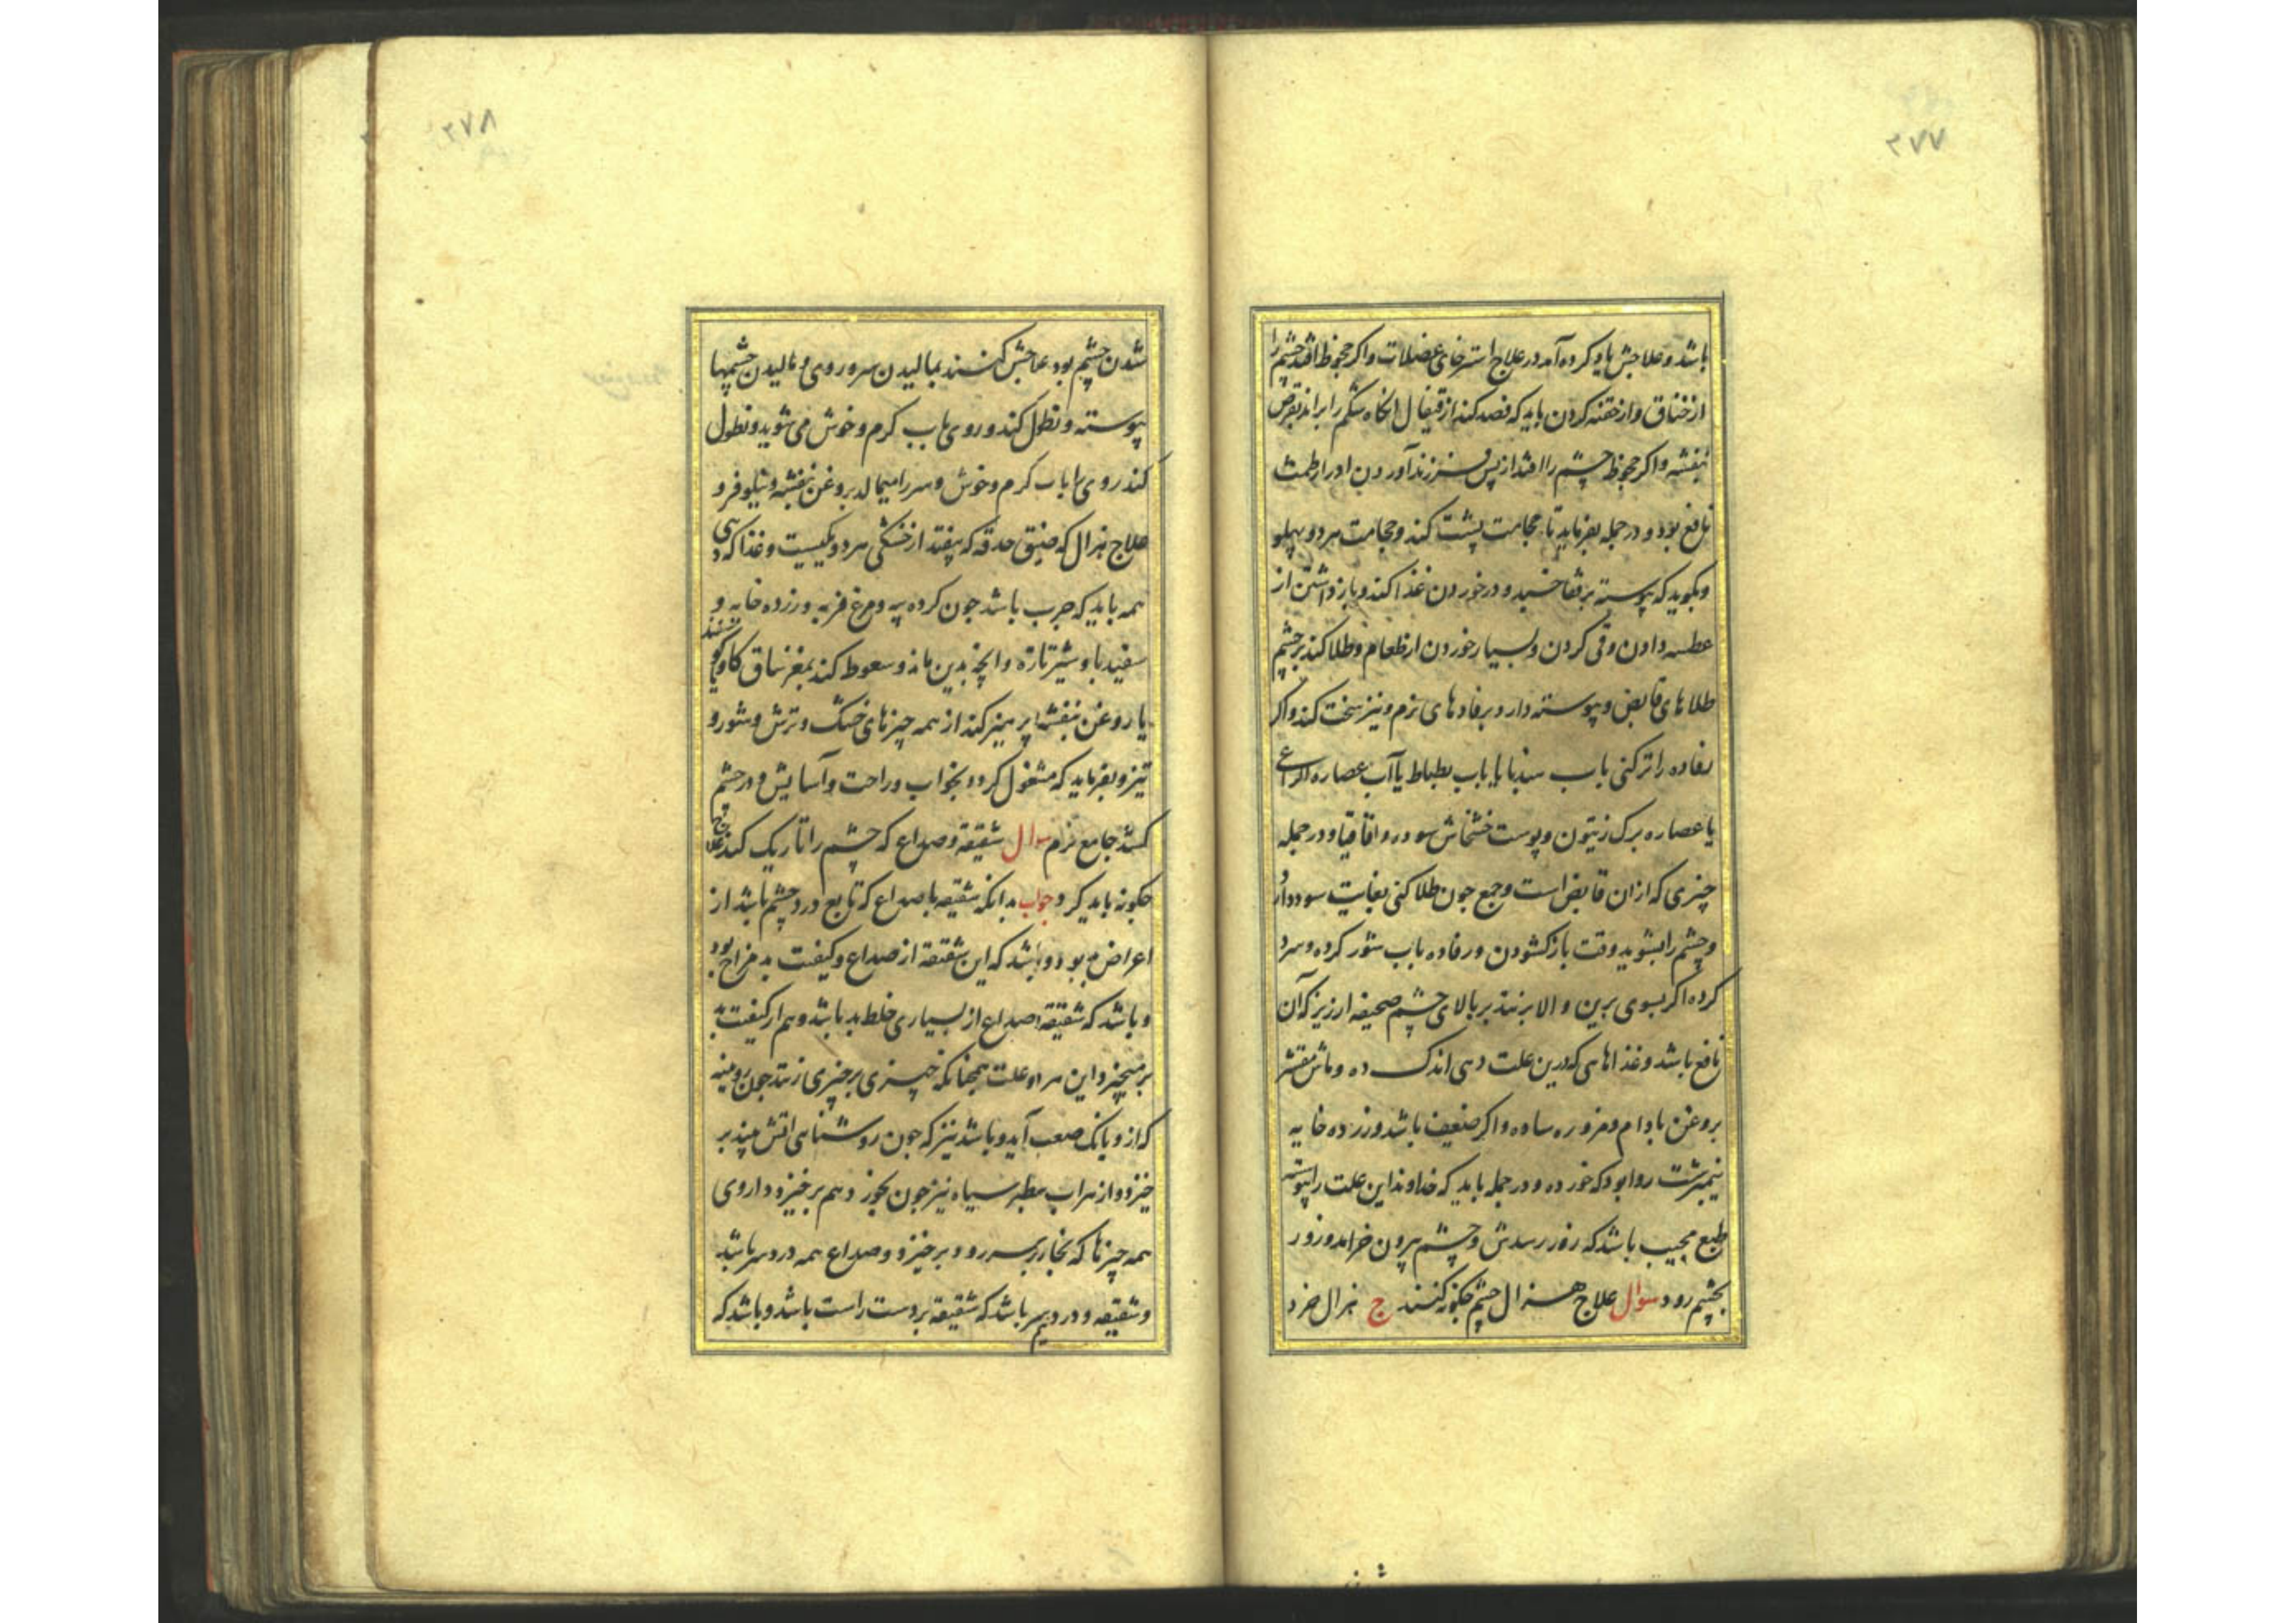 ۲۷۷
باشد و علاجش یاد کرده آمد در علاج استرخای عضلات و اکر جحوظ افتد چشم را
از خناق و از خفه کردن باید که فصد کند از قیفال انکاه شکم را براند بقرص
بنفشه و اکر جحوظ چشم را افتد از پس فرزند آوردن ادرار طمث
نافع بود و در جمله بفرماید تا حجامت پشت کند و حجامت هر دو پهلو
و بکوید که پیوسته برقفا خسبد و در خوردن غذا کند و باز داشتن از
عطسه دادن و قی کردن و بسیار خوردن از طعام و طلا کند بر چشم
طلاهای قابض و پیوسته دارد برفادهای نرم و نیز سخت کند و اکر
رفاده را تر کنی باب هندبا یا باب بطباط یا آب عصاره الراعی
یا عصاره برک زیتون و پوست خشخاش سوده و اقاقیا و در جمله
چیزی که از ان قابض است و جمع چون طلا کنی بغایت سود دارد
و چشم را بشوید وقت باز کشودن و رفاده باب شور کرده و سرد
کرده اکر بسوی برین و الا بر نهد بر بالای چشم صحیفه ارزیز که آن
نافع باشد و غذاهایی که درین علت دهی اندک ده و ماش مقشر
بروغن بادام و مزوره ساده و اکر ضعیف باشد و زرده خایه
نیمبرشت روا بود که خورده و در جمله باید که خداوند این علت را پیوسته
طبع مجیب باشد که زور رسدش و چشم بیرون خزاند و زور
بچشم رود سوال علاج هزال چشم چکونه کنند ج هزال خرد
۲۷۸
شدن چشم بود علاجش کنند بمالیدن سر و روی و مالیدن چشمها
پیوسته و نطل کند و روی باب کرم و خوش می شوید و نطول
کند روی را باب کرم و خوش و سر را میمالد بروغن بنفشه و نیلوفر و
علاج هزال که ضیق حدقه که بیفتد از خشکی هر دو یکیست و غذا که دهی
همه باید که چرب باشد چون کرده پیه و مرغ فربه و زرده خایه و
سفیدبا و شیر تازه و انچه بدین ماند و سعوط کند بمغز ساق کاو کوسفند
یا روغن بنفشه پرهیز کند از همه چیزهای خشک و ترش و شور و
تیز و بفرماید که مشغول کردد بخواب و راحت و آسایش و در چشم
کشد جامع نرم سوال شقیقه و صداع که چشم را تاریک کند علاج
چکونه باید کرد جواب بدانکه شقیقه یا صداع که تابع درد چشم باشد از
اعراض بود و باشد که این شقیقه از صداع و کیفیت بد مزاج بود
و باشد که شقیقه و صداع از بسیاری خلط بد باشد و هم از کیفیت
بر میخیزد این هر دو علت همچنانکه چیزی بر چیزی زنند چون رویینه
که از و بانک صعب آید و باشد نیز که چون روشنایی اتش بیند بر
خیزد و از شراب سطبر سیاه نیز چون بخورد هم برخیزد و داروی
همه چیزها که بخار بر سر رود برخیزد و صداع همه درد سر باشد
و شقیقه درد نیم سر باشد که شقیقه بر دست راست باشد و باشد که